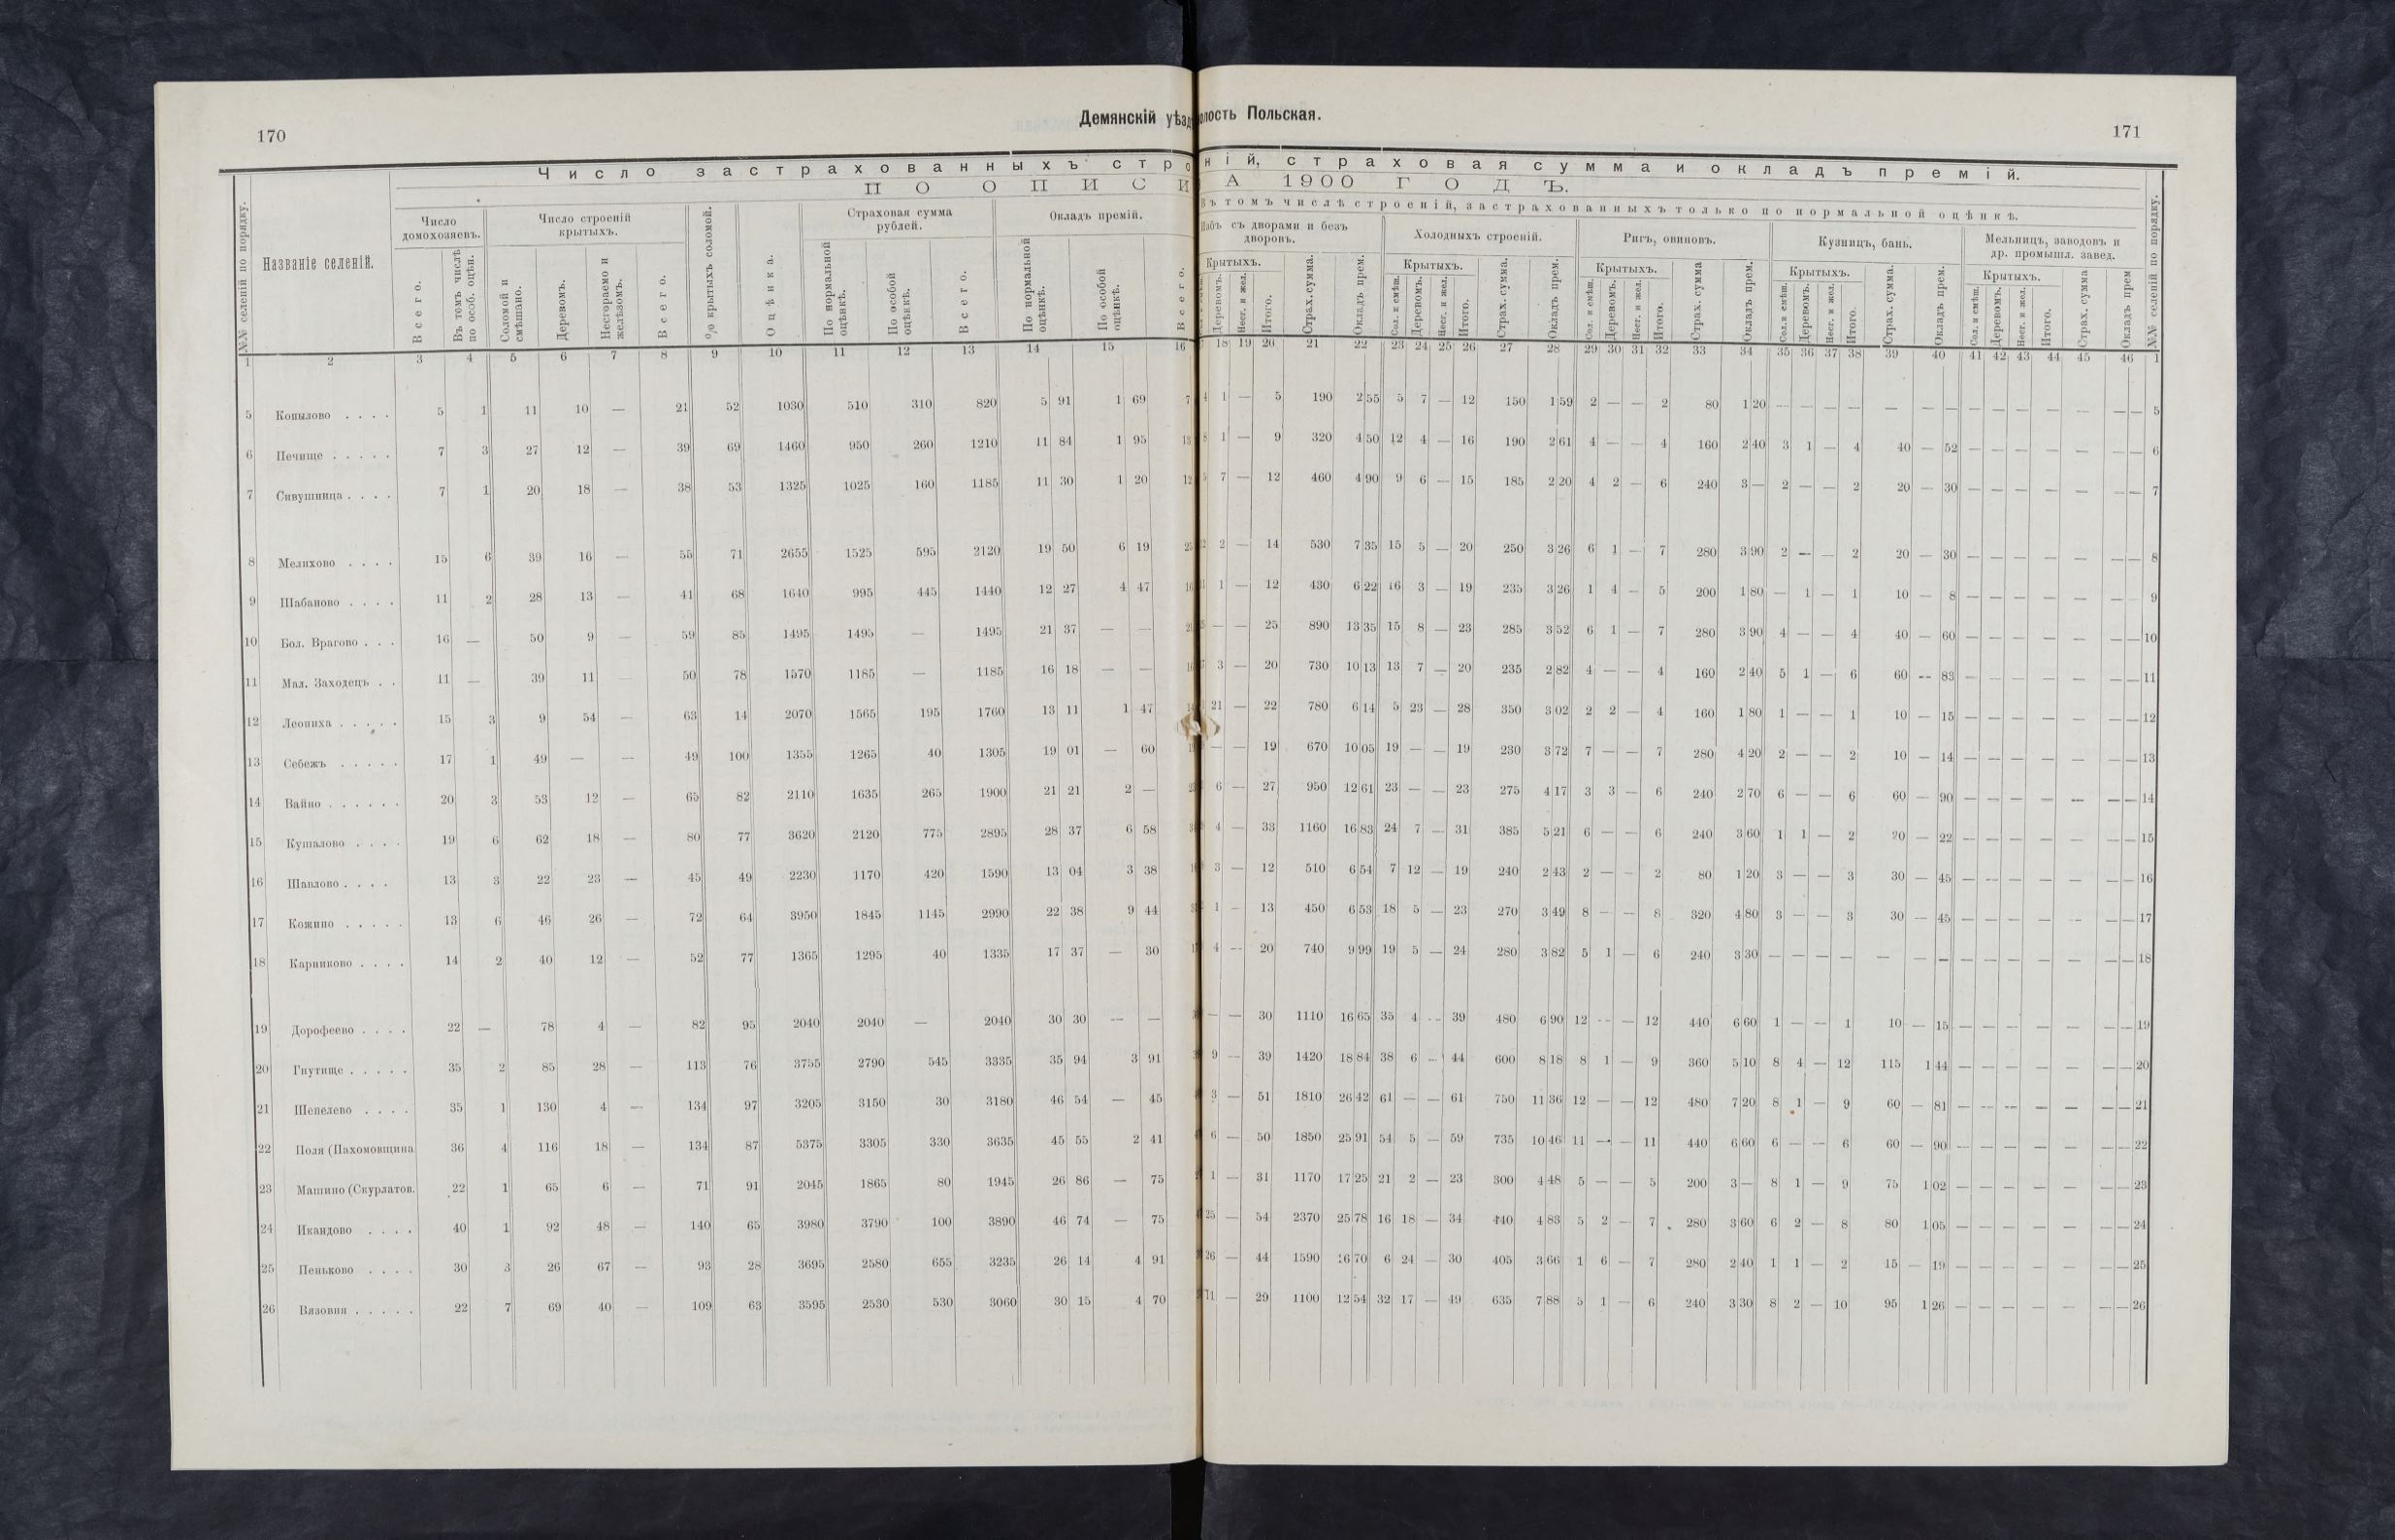 170
Демянскій уѣзд
олость Польская.
171
Число застрахованныхъ стро
ній, страховая сумма и окладъ премій.
ПО ОПИСИ
А 1900 ГОДЪ.
Въ томъ числѣ строеній, застрахованныхъ только по нормальной оцѣнкѣ.
№№ селеній по порядку.
Названіе селеній.
Число домохозяевъ.
Всего.
Въ томъ числѣ по особ. оцѣн.
Число строеній крытыхъ.
Соломой и смѣшано.
Деревомъ.
Несгораемо и желѣзомъ.
Всего.
% крытыхъ соломой.
Оцѣнка.
Страховая сумма рублей.
По нормальной оцѣнкѣ.
По особой оцѣнкѣ.
Всего.
Окладъ премій.
По нормальной оцѣнкѣ.
По особой оцѣнкѣ.
Всего.
Избъ съ дворами и безъ дворовъ.
Крытыхъ.
Деревомъ.
Несг. и жел.
Итого.
Страх. сумма.
Окладъ прем.
Холодныхъ строеній.
Крытыхъ.
Сол. и смѣш.
Деревомъ.
Несг. и жел.
Итого.
Страх. сумма.
Окладъ прем.
Ригъ, овиновъ.
Крытыхъ.
Сол. и смѣш.
Деревомъ.
Несг. и жел.
Итого.
Страх. сумма
Окладъ прем.
Кузницъ, бань.
Крытыхъ.
Сол. и смѣш.
Деревомъ.
Несг. и жел.
Итого.
Страх. сумма.
Окладъ прем.
Мельницъ, заводовъ и др. промышл. завед.
Крытыхъ.
Сол. и смѣш.
Деревомъ.
Несг. и жел.
Итого.
Страх. сумма
Окладъ прем
№№ селеній по порядку.
1 2 3 4 5 6 7 8 9 10 11 12 13 14 15 16 18 19 20 21 22 23 24 25 26 27 28 29 30 31 32 33 34 35 36 37 38 39 40 41 42 43 44 45 46 1
5 Копылово . . . . 5 1 11 10 — 21 52 1030 510 310 820 5 91 1 69 7 4 1 — 5 190 2 55 5 7 — 12 150 1 59 2 — — 2 80 1 20 — — — — — — — — — — — — — — 5
6 Печище . . . . . 7 3 27 12 — 39 69 1460 950 260 1210 11 84 1 95 13 8 1 — 9 320 4 50 12 4 — 16 190 2 61 4 — — 4 160 2 40 3 1 — 4 40 — 52 — — — — — — — 6
7 Сивушница . . . . 7 1 20 18 — 38 53 1325 1025 160 1185 11 30 1 20 12 5 7 — 12 460 4 90 9 6 — 15 185 2 20 4 2 — 6 240 3 — 2 — — 2 20 — 30 — — — — — — — 7
8 Мелихово . . . . 15 6 39 16 — 55 71 2655 1525 595 2120 19 50 6 19 25 12 2 — 14 530 7 35 15 5 — 20 250 3 26 6 1 — 7 280 3 90 2 — — 2 20 — 30 — — — — — — — 8
9 Шабаново . . . . 11 2 28 13 — 41 68 1640 995 445 1440 12 27 4 47 16 11 1 — 12 430 6 22 16 3 — 19 235 3 26 1 4 — 5 200 1 80 — 1 — 1 10 — 8 — — — — — — — 9
10 Бол. Врагово . . . 16 — 50 9 — 59 85 1495 1495 — 1495 21 37 — — 21 25 — — 25 890 13 35 15 8 — 23 285 3 52 6 1 — 7 280 3 90 4 — — 4 40 — 60 — — — — — — — 10
11 Мал. Заходецъ . . 11 — 39 11 — 50 78 1570 1185 — 1185 16 18 — — 16 17 3 — 20 730 10 13 13 7 — 20 235 2 82 4 — — 4 160 2 40 5 1 — 6 60 — 83 — — — — — — — 11
12 Леониха . . . . . 15 3 9 54 — 63 14 2070 1565 195 1760 13 11 1 47 14 21 — 22 780 6 14 5 23 — 28 350 3 02 2 2 — 4 160 1 80 1 — — 1 10 — 15 — — — — — — — 12
13 Себежъ . . . . . 17 1 49 — — 49 100 1355 1265 40 1305 19 01 — 60 19 — — 19 670 10 05 19 — — 19 230 3 72 7 — — 7 280 4 20 2 — — 2 10 — 14 — — — — — — — 13
14 Вайно . . . . . . 20 3 53 12 — 65 82 2110 1635 265 1900 21 21 2 — 23 6 — 27 950 12 61 23 — — 23 275 4 17 3 3 — 6 240 2 70 6 — — 6 60 — 90 — — — — — — — 14
15 Кушалово . . . . 19 6 62 18 — 80 77 3620 2120 775 2895 28 37 6 58 4 — 33 1160 16 83 24 7 — 31 385 5 21 6 — — 6 240 3 60 1 1 — 2 20 — 22 — — — — — — — 15
16 Шавлово . . . . 13 3 22 23 — 45 49 2230 1170 420 1590 13 04 3 38 3 — 12 510 6 54 7 12 — 19 240 2 43 2 — — 2 80 1 20 3 — — 3 30 — 45 — — — — — — — 16
17 Кожино . . . . . 13 6 46 26 — 72 64 3950 1845 1145 2990 22 38 9 44 1 — 13 450 6 53 18 5 — 23 270 3 49 8 — — 8 320 4 80 3 — — 3 30 — 45 — — — — — — — 17
18 Карпиково . . . . 14 2 40 12 — 52 77 1365 1295 40 1335 17 37 — 30 4 — 20 740 9 99 19 5 — 24 280 3 82 5 1 — 6 240 3 30 — — — — — — — — — — — — — 18
19 Дорофеево . . . . 22 — 78 4 — 82 95 2040 2040 — 2040 30 30 — — — — 30 1110 16 65 35 4 — 39 480 6 90 12 — — 12 440 6 60 1 — — 1 10 — 15 — — — — — — — 19
20 Гнутище . . . . . 35 2 85 28 — 113 76 3755 2790 545 3335 35 94 3 91 9 — 39 1420 18 84 38 6 — 44 600 8 18 8 1 — 9 360 5 10 8 4 — 12 115 1 44 — — — — — — — 20
21 Шепелево . . . . 35 1 130 4 — 134 97 3205 3150 30 3180 46 54 — 45 3 — 51 1810 26 42 61 — — 61 750 11 36 12 — — 12 480 7 20 8 1 — 9 60 — 81 — — — — — — — 21
22 Поля (Пахомовщина 36 4 116 18 — 134 87 5375 3305 330 3635 45 55 2 41 6 — 50 1850 25 91 54 5 — 59 735 10 46 11 — — 11 440 6 60 6 — — 6 60 — 90 — — — — — — — 22
23 Машино (Скурлатов. 22 1 65 6 — 71 91 2045 1865 80 1945 26 86 — 75 1 — 31 1170 17 25 21 2 — 23 300 4 48 5 — — 5 200 3 — 8 1 — 9 75 1 02 — — — — — — — 23
24 Икандово . . . . 40 1 92 48 — 140 65 3980 3790 100 3890 46 74 — 75 25 — 54 2370 25 78 16 18 — 34 440 4 83 5 2 — 7 280 3 60 6 2 — 8 80 1 05 — — — — — — — 24
25 Пеньково . . . . 30 3 26 67 — 93 28 3695 2580 655 3235 26 14 4 91 26 — 44 1590 16 70 6 24 — 30 405 3 66 1 6 — 7 280 2 40 1 1 — 2 15 — 19 — — — — — — — 25
26 Вязовня . . . . . 22 7 69 40 — 109 63 3595 2530 530 3060 30 15 4 70 11 — 29 1100 12 54 32 17 — 49 635 7 88 5 1 — 6 240 3 30 8 2 — 10 95 1 26 — — — — — — — 26